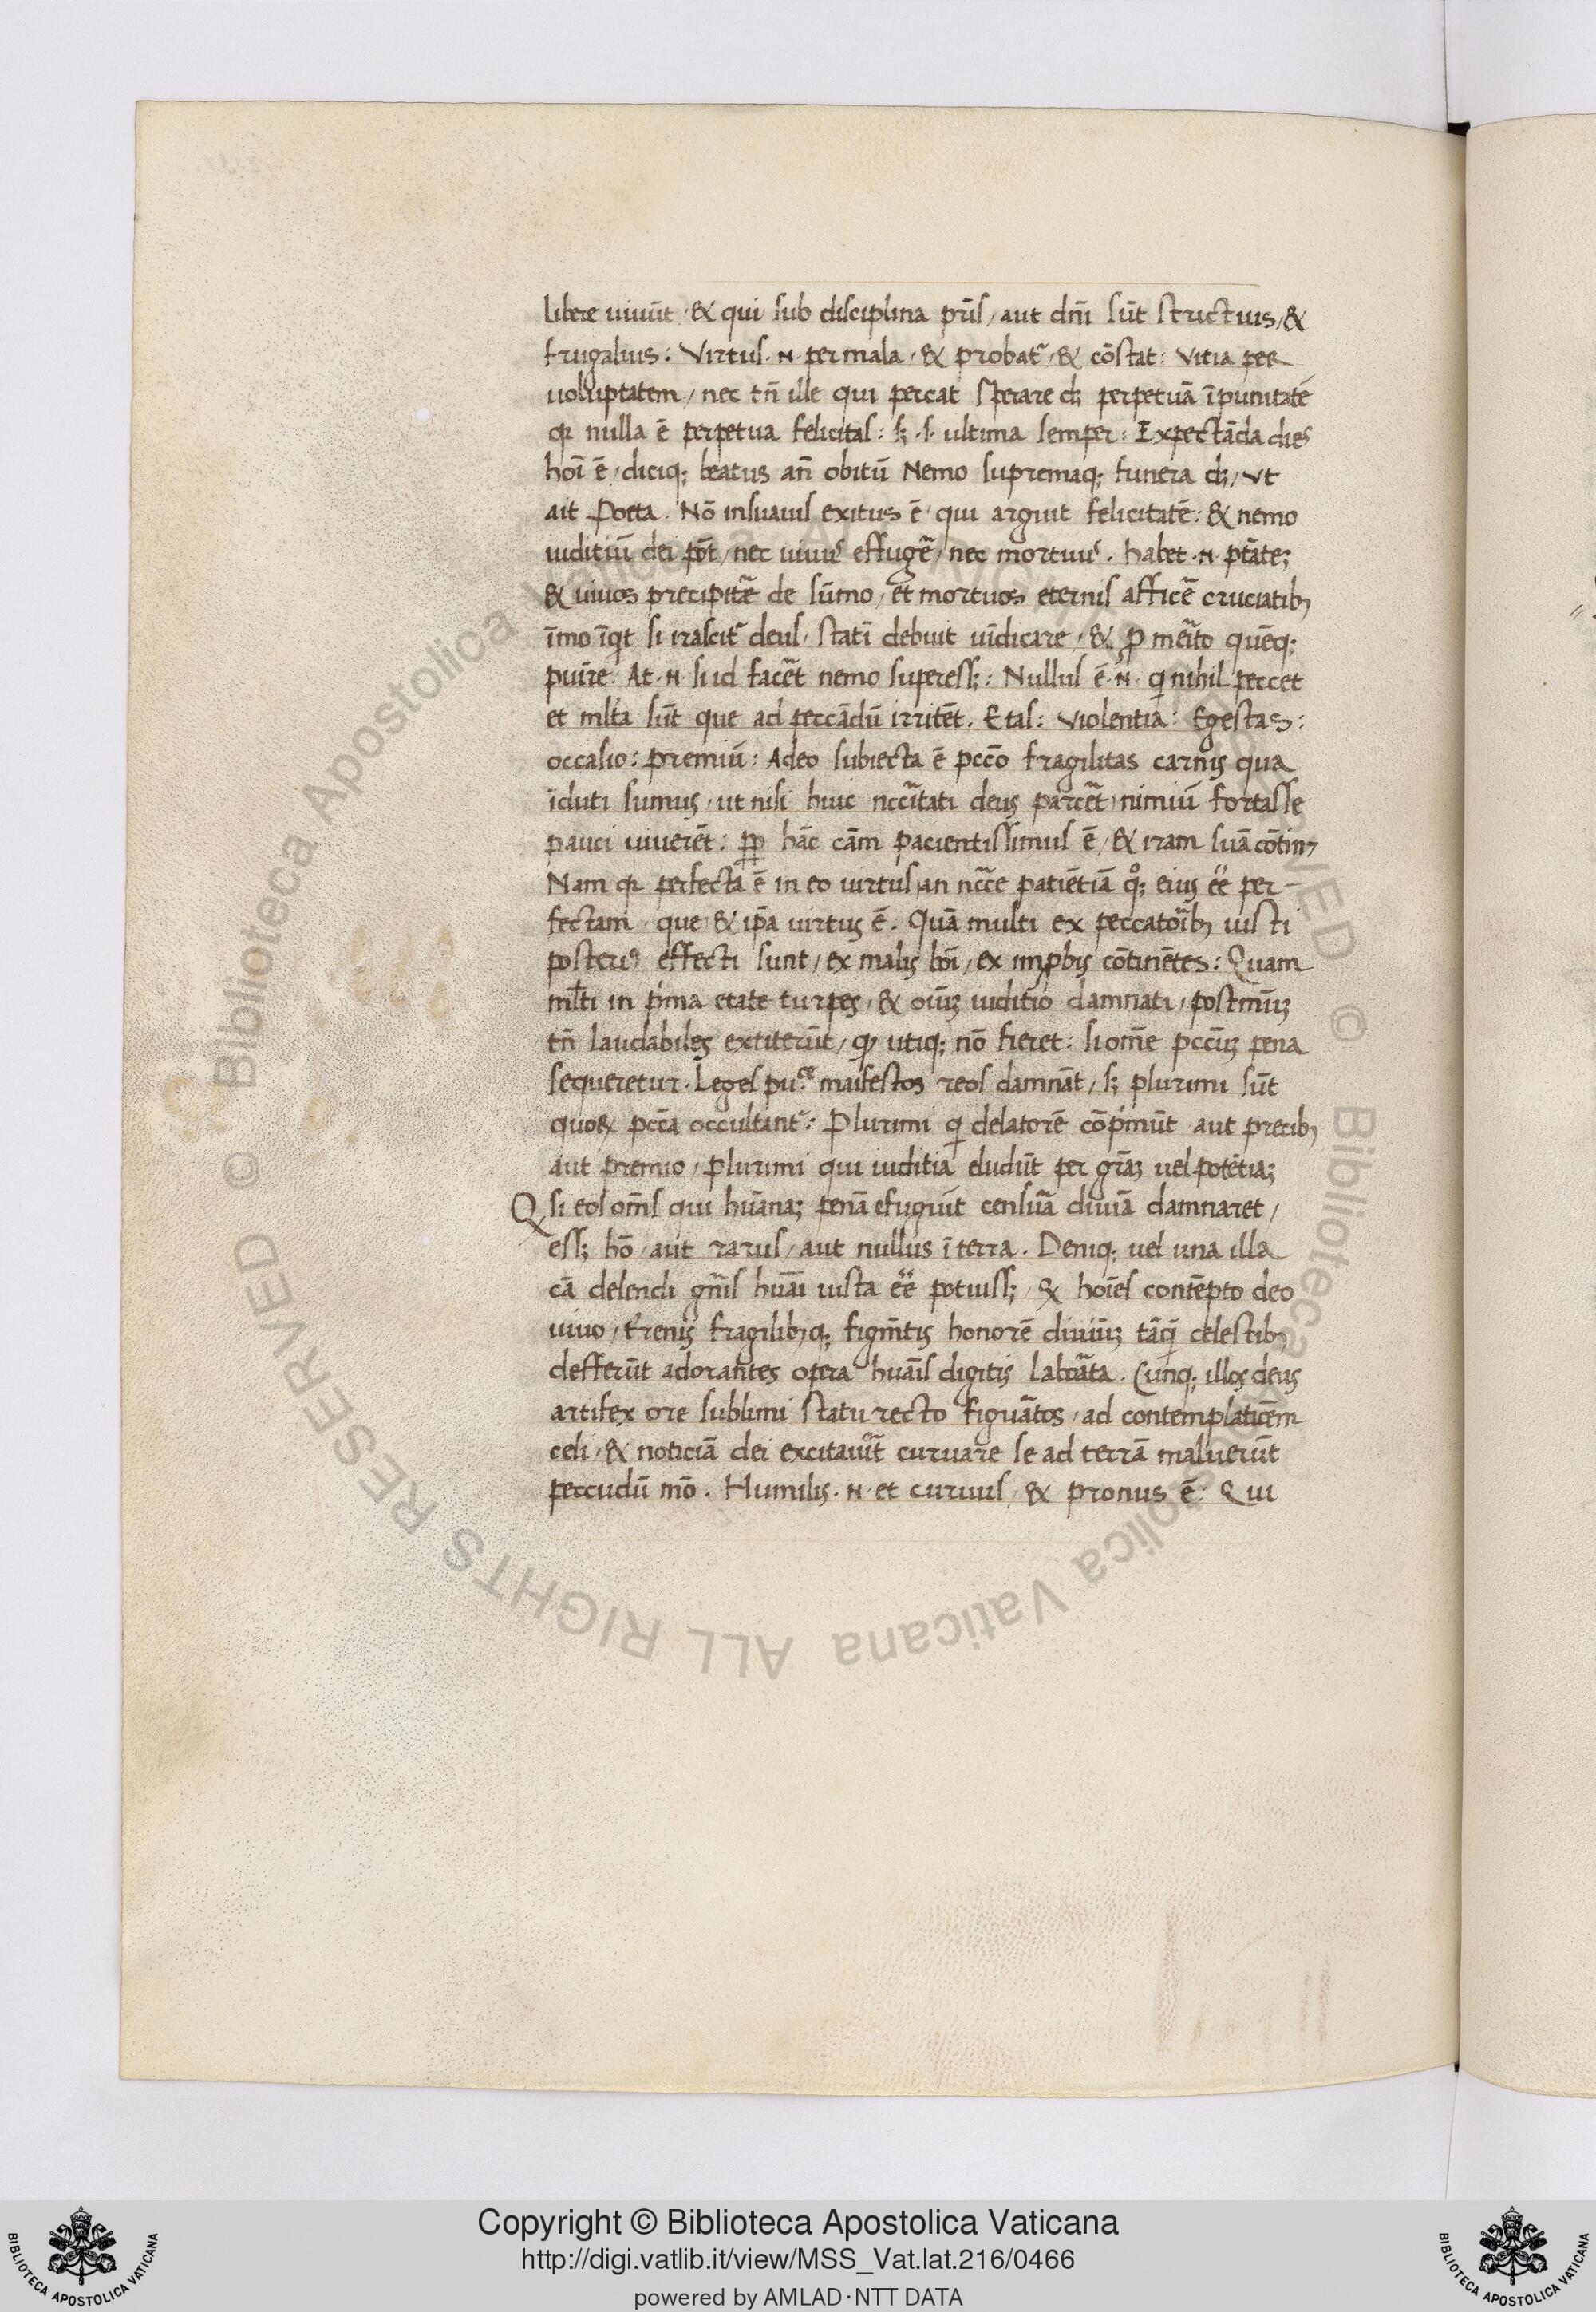 libere uiuūt, & qui sub disciplina pr̄is, aut dn̄i sūt strictius, &
frugalius: Virtus .N. per mala, & probat᷑, & cōstat: Vitia per
uoluptatem, nec tn̄ ille qui peccat sperare dꝫ perpetuā īpunitatē
qꝛ nulla ē perpetua felicitas: sꝫ .s. ultima semper: Expectāda dies
hoī ē, diciqꝫ beatus an̄ obitū Nemo supremaqꝫ funera dꝫ, Vt
ait Poeta. Nō insuauis exitus ē, qui arguit felicitatē: & nemo
iuditiū dei pōt, nec uiuuˢ effugē, nec mortuuˢ. habet .N. ptāteꝫ
& uiuos precipitāe de sūmo, et mortuos eternis afficē cruciatibꝫ
īmo īqit si irascit᷑ deus, statī debuit uīdicare, & ꝓ mēito quēqꝫ
puīre. At .N. si id facēt nemo superessꝫ: Nullus ē .N. qi nihil peccet
et ml̄ta sūt que ad peccādū irritēt. Etas: Violentia: Egestas:
occasio: premiū: Adeo subiecta ē pccō fragilitas carnis qua
īduti sumus, ut nisi huic nccītati deus parcēt, nimiū fortasse
pauci uiuerēt: ꝓp̄ hāc cām pacientissimus ē, & iram suā cōtinꝫ
Nam qꝛ perfecta ē in eo uirtus, an ncc̄e patiētiā qͦꝫ eius ēē per-
fectam, que & ip̄a uirtus ē. Quā multi ex peccatoībꝫ iusti
posteriꝰ effecti sunt, ex malis boī, ex imꝓbis cōtinētes: Quam
ml̄ti in pⁱma etate turpes, & oīuꝫ iuditio damnati, postmūꝫ
tn̄ laudabiles extiterūt, qđ utiqꝫ nō fieret: si om̄e pccūꝫ pena
sequeretur. Leges pu.ᶜᵉ maifestos reos damnāt, sꝫ plurimi sūt
quoꝝ pccā occultant᷑: Plurimi qi delatorē cōpⁱmūt aut precibꝫ
aut premio, plurimi qui iuditia eludūt per grāꝫ uel potētiaꝫ
Qđ si eos om̄s qui humānaꝫ penā efugiūt censūa diuiā damnaret,
essꝫ hō, aut rarus, aut nullus ī terra. Deniqꝫ uel una illa
cā delendi gn̄is huāi iusta ēē potuissꝫ, qđ hoīes contēpto deo
uiuo, t̄renis fragilibꝫqꝫ figm̄tis honorē diuiūꝫ tāqꝫ celestibꝫ
defferūt adorantes opera huāis digitis laborāta. Cunqꝫ illos deus
artifex ore sublimi statu recto figuātos, ad contemplatiōem
celi, & noticiā dei excitauīt, curuare se ad terrā maluerūt
peccudū mō. Humilis .N. et curuus, & pronus ē. Qui
Copyright © Biblioteca Apostolica Vaticana
http://digi.vatlib.it/view/MSS_Vat.lat.216/0466
powered by AMLAD·NTT DATA
BIBLIOTECA APOSTOLICA VATICANA
BIBLIOTECA APOSTOLICA VATICANA
© Biblioteca Apostolica Vaticana ALL RIGHTS RESERVED
© Biblioteca Apostolica Vaticana ALL RIGHTS RESERVED